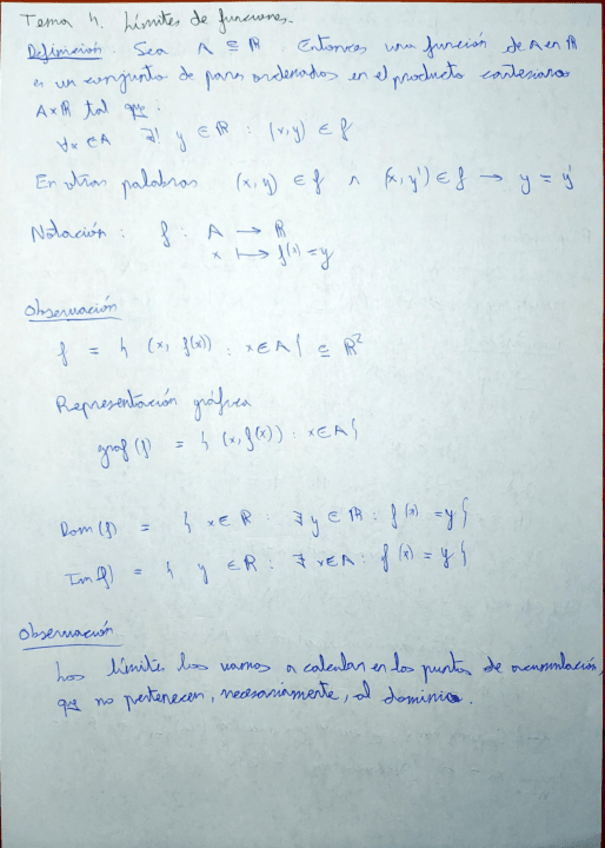 Tema 4. Límites de funciones.
Definición. Sea A ⊆ ℝ. Entonces una función de A en ℝ
es un conjunto de pares ordenados en el producto cartesiano
A×ℝ tal que:
∀x ∈ A ∃! y ∈ ℝ : (x,y) ∈ f
En otras palabras (x,y) ∈ f ∧ (x,y') ∈ f → y = y'
Notación: f : A → ℝ
x ↦ f(x) = y
Observación
f = { (x, f(x)) : x ∈ A } ⊆ ℝ²
Representación gráfica
graf(f) = { (x, f(x)) : x ∈ A }
Dom(f) = { x ∈ ℝ : ∃ y ∈ ℝ : f(x) = y }
Im(f) = { y ∈ ℝ : ∃ x ∈ A : f(x) = y }
Observación
Los límites los vamos a calcular en los puntos de acumulación,
que no pertenecen, necesariamente, al dominio.